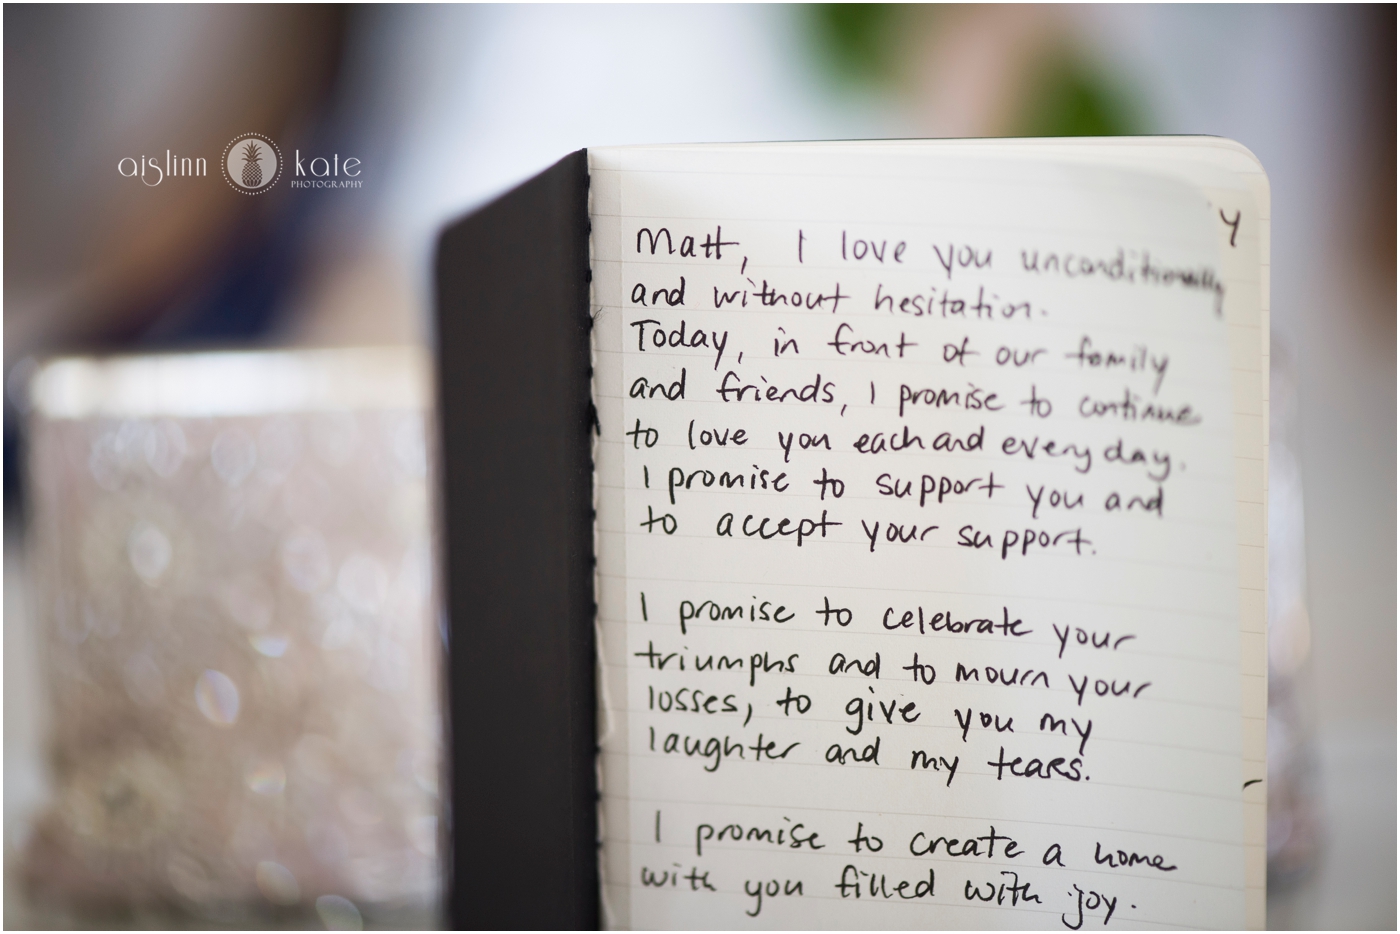 aislinn kate
PHOTOGRAPHY
y
Matt, I love you unconditionally
and without hesitation.
Today, in front of our family
and friends, I promise to continue
to love you each and every day.
I promise to support you and
to accept your support.
I promise to celebrate your
triumphs and to mourn your
losses, to give you my
laughter and my tears.
I promise to create a home
with you filled with joy.